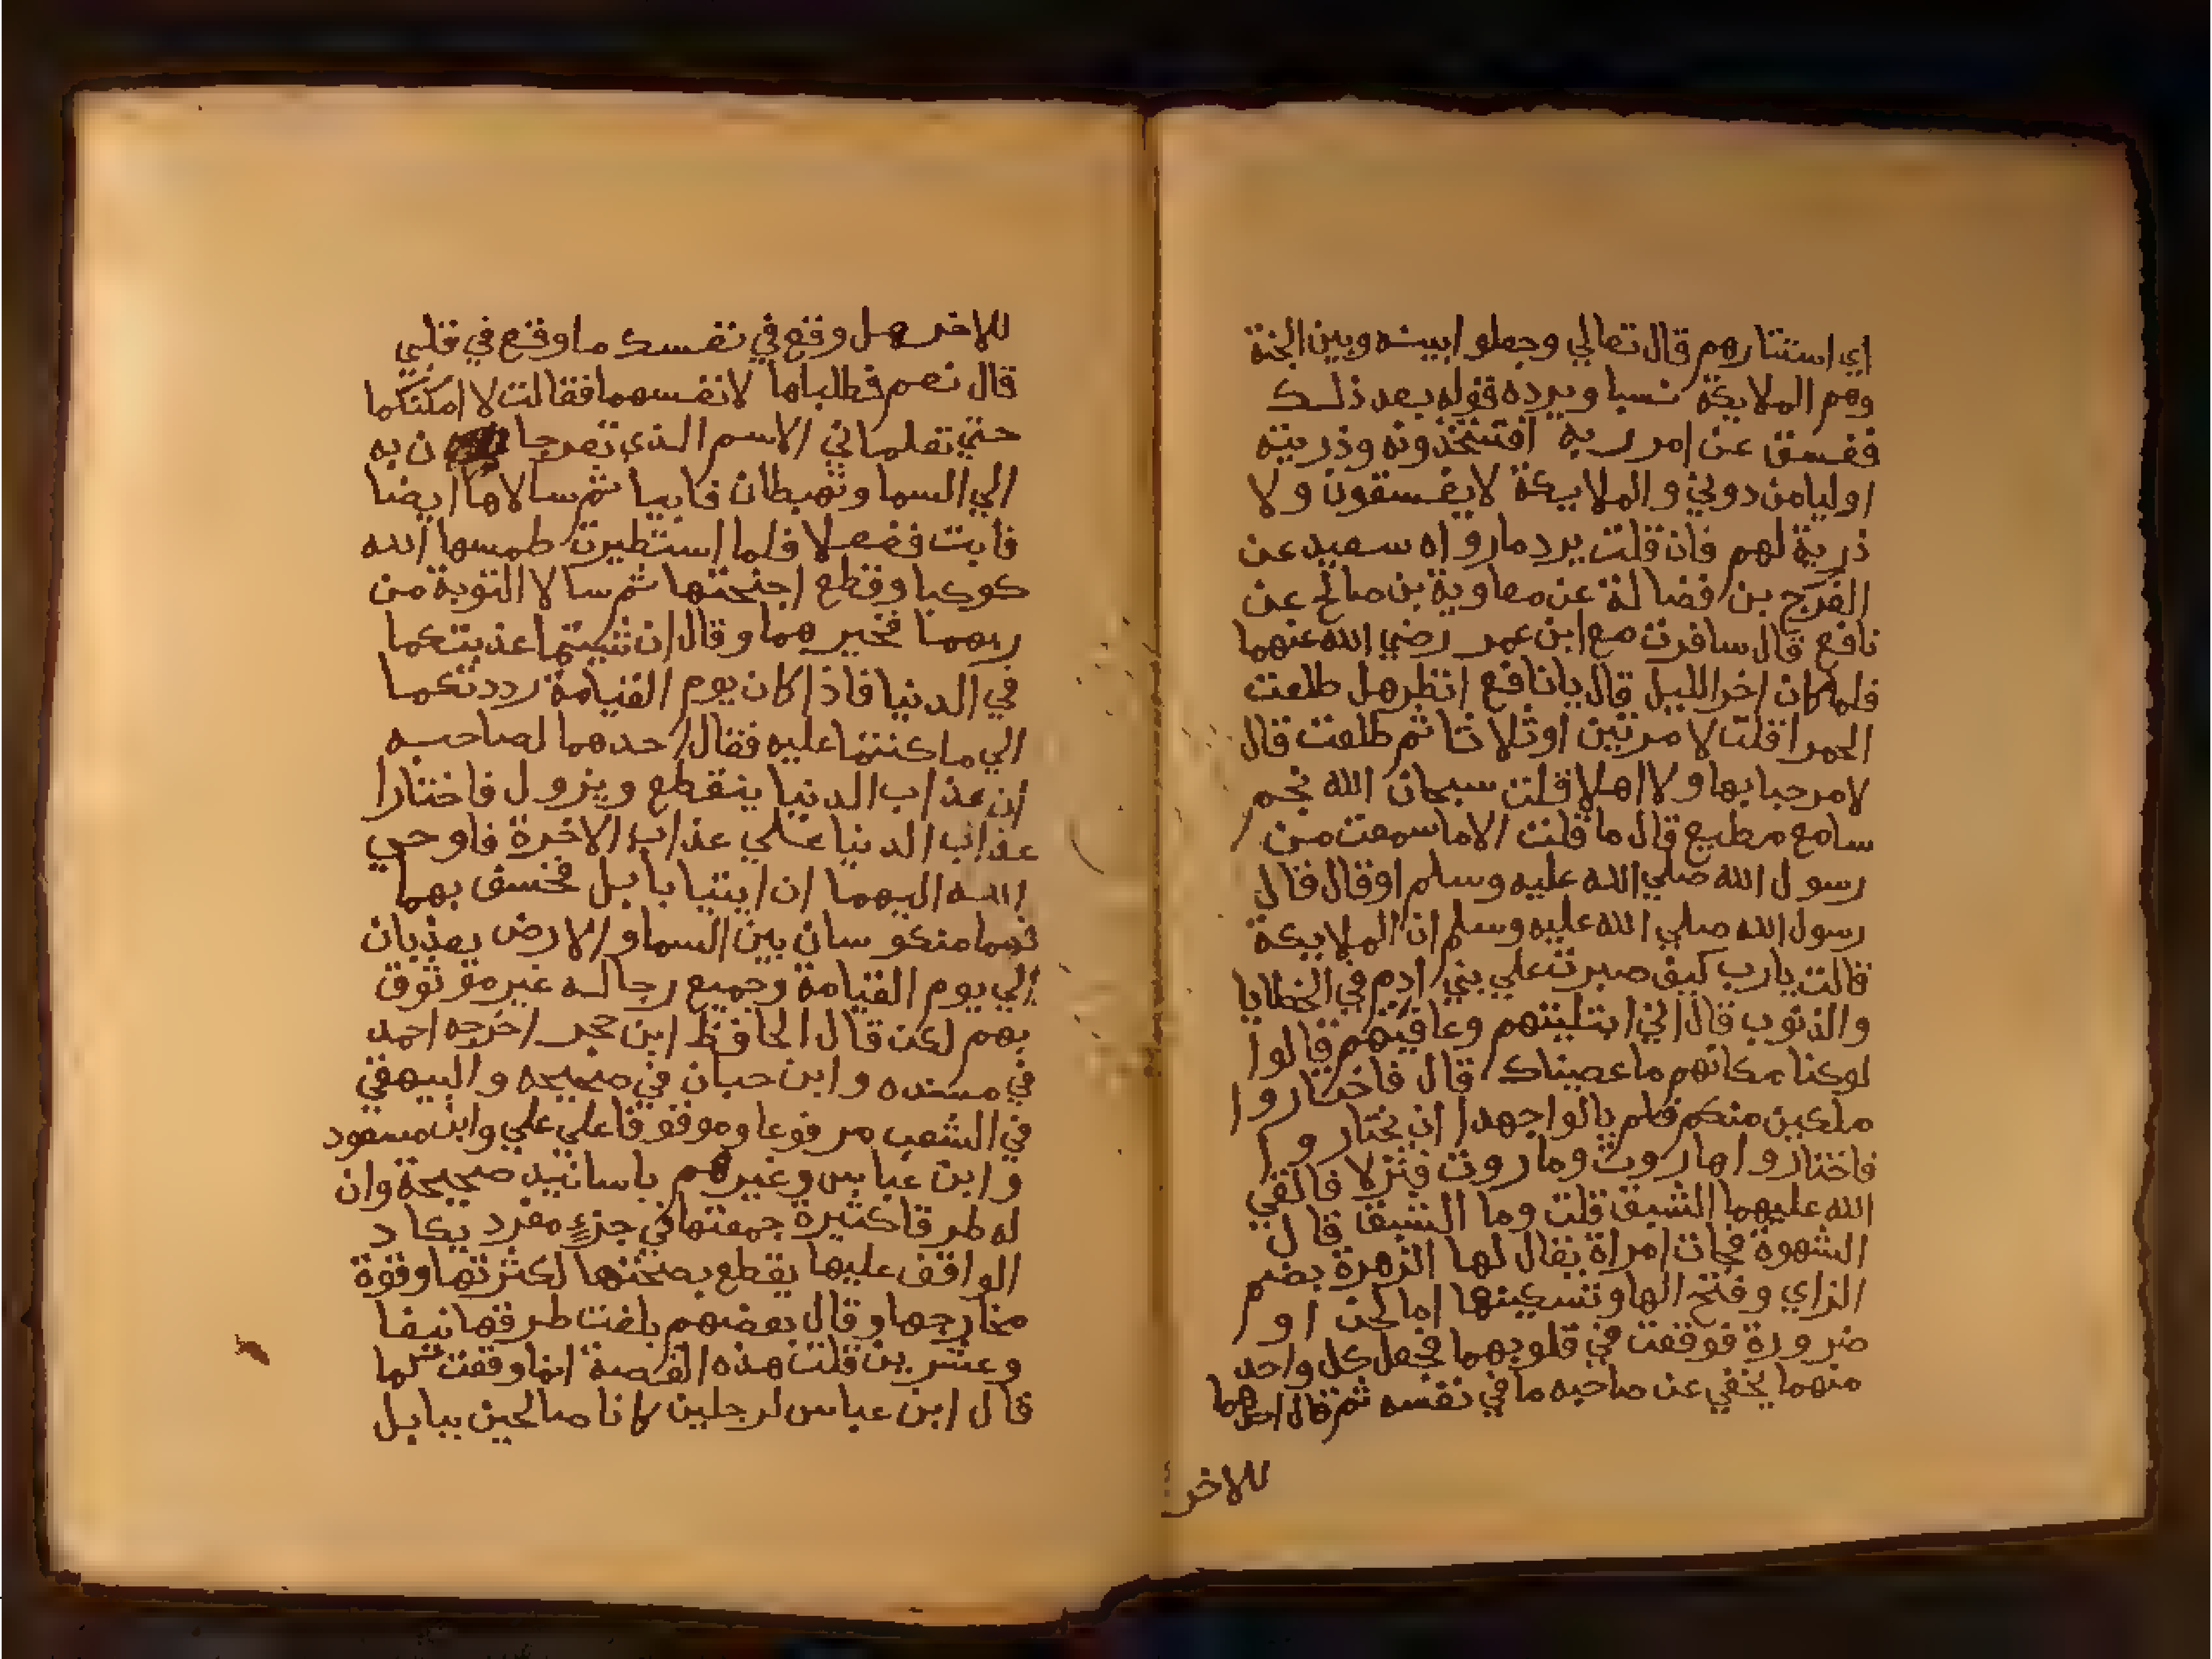 اي استتارهم قال تعالي وجعلو ابينه وبين الجنة
وهم الملايكة نسبا ويرده قوله بعد ذلك
ففسق عن امر ربه افتتخذونه وذريته
اوليا من دوني والملايكة لا يفسقون ولا
ذرية لهم فان قلت يرد ما رواه سعيد عن
الفرج بن فضالة عن معاوية بن صالح عن
نافع قال سافرت مع ابن عمر رضي الله عنهما
فلما كان اخر الليل قال يا نافع انظر هل طلعت
الحمرا قلت لا مرتين او ثلاثا ثم طلعت قال
لا مرحبا بها ولا اهلا قلت سبحان الله نجم
سامع مطيع قال ما قلت الا ما سمعت من
رسول الله صلي الله عليه وسلم او قال قال
رسول الله صلي الله عليه وسلم ان الملايكة
قالت يارب كيف صبرت علي بني ادم في الخطايا
والذنوب قال اني ابتليتهم وعافيتهم قالوا
لو كنا مكانهم ما عصيناك قال فاختاروا
ملكين منكم فلم يالوا جهدا ان يختاروا
فاختاروا هاروت وماروت فنزلا فالقي
الله عليهما الشبق قلت وما الشبق قال
الشهوة فجات امراة يقال لها الزهرة بضم
الزاي وفتح الها وتسكينها اما لحن او
ضرورة فوقعت في قلوبهما فجعل كل واحد
منهما يخفي عن صاحبه ما في نفسه ثم قال احدهما
للاخر
للاخر هل وقع في نفسك ما وقع في قلبي
قال نعم فطلباها لانفسهما فقالت لا امكنكما
حتي تعلماني الاسم الذي تعرجان به
الي السما وتهبطان فابيا ثم سالاها ايضا
فابت ففعلا فلما استطيرت طمسها الله
كوكبا وقطع اجنحتها ثم سالا التوبة من
ربهما فخيرهما وقال ان شيتما عذبتكما
في الدنيا فاذا كان يوم القيامة رددتكما
الي ما كنتما عليه فقال احدهما لصاحبه
ان عذاب الدنيا ينقطع ويزول فاختارا
عذاب الدنيا علي عذاب الاخرة فاوحي
الله اليهما ان ايتيا بابل فخسف بهما
فهما منكوسان بين السما والارض يعذبان
الي يوم القيامة وجميع رجاله غير موثوق
بهم لكن قال الحافظ ابن حجر اخرجه احمد
في مسنده وابن حبان في صحيحه والبيهقي
في الشعب مرفوعا وموقوفا علي علي وابن مسعود
وابن عباس وغيرهم باسانيد صحيحة وان
له طرقا كثيرة جمعتها في جزء مفرد يكاد
الواقف عليها يقطع بصحتها لكثرتها وقوة
مخارجها وقال بعضهم بلغت طرقها نيفا
وعشرين قلت هذه القصة انما وقعت كما
قال ابن عباس لرجلين كانا صالحين ببابل